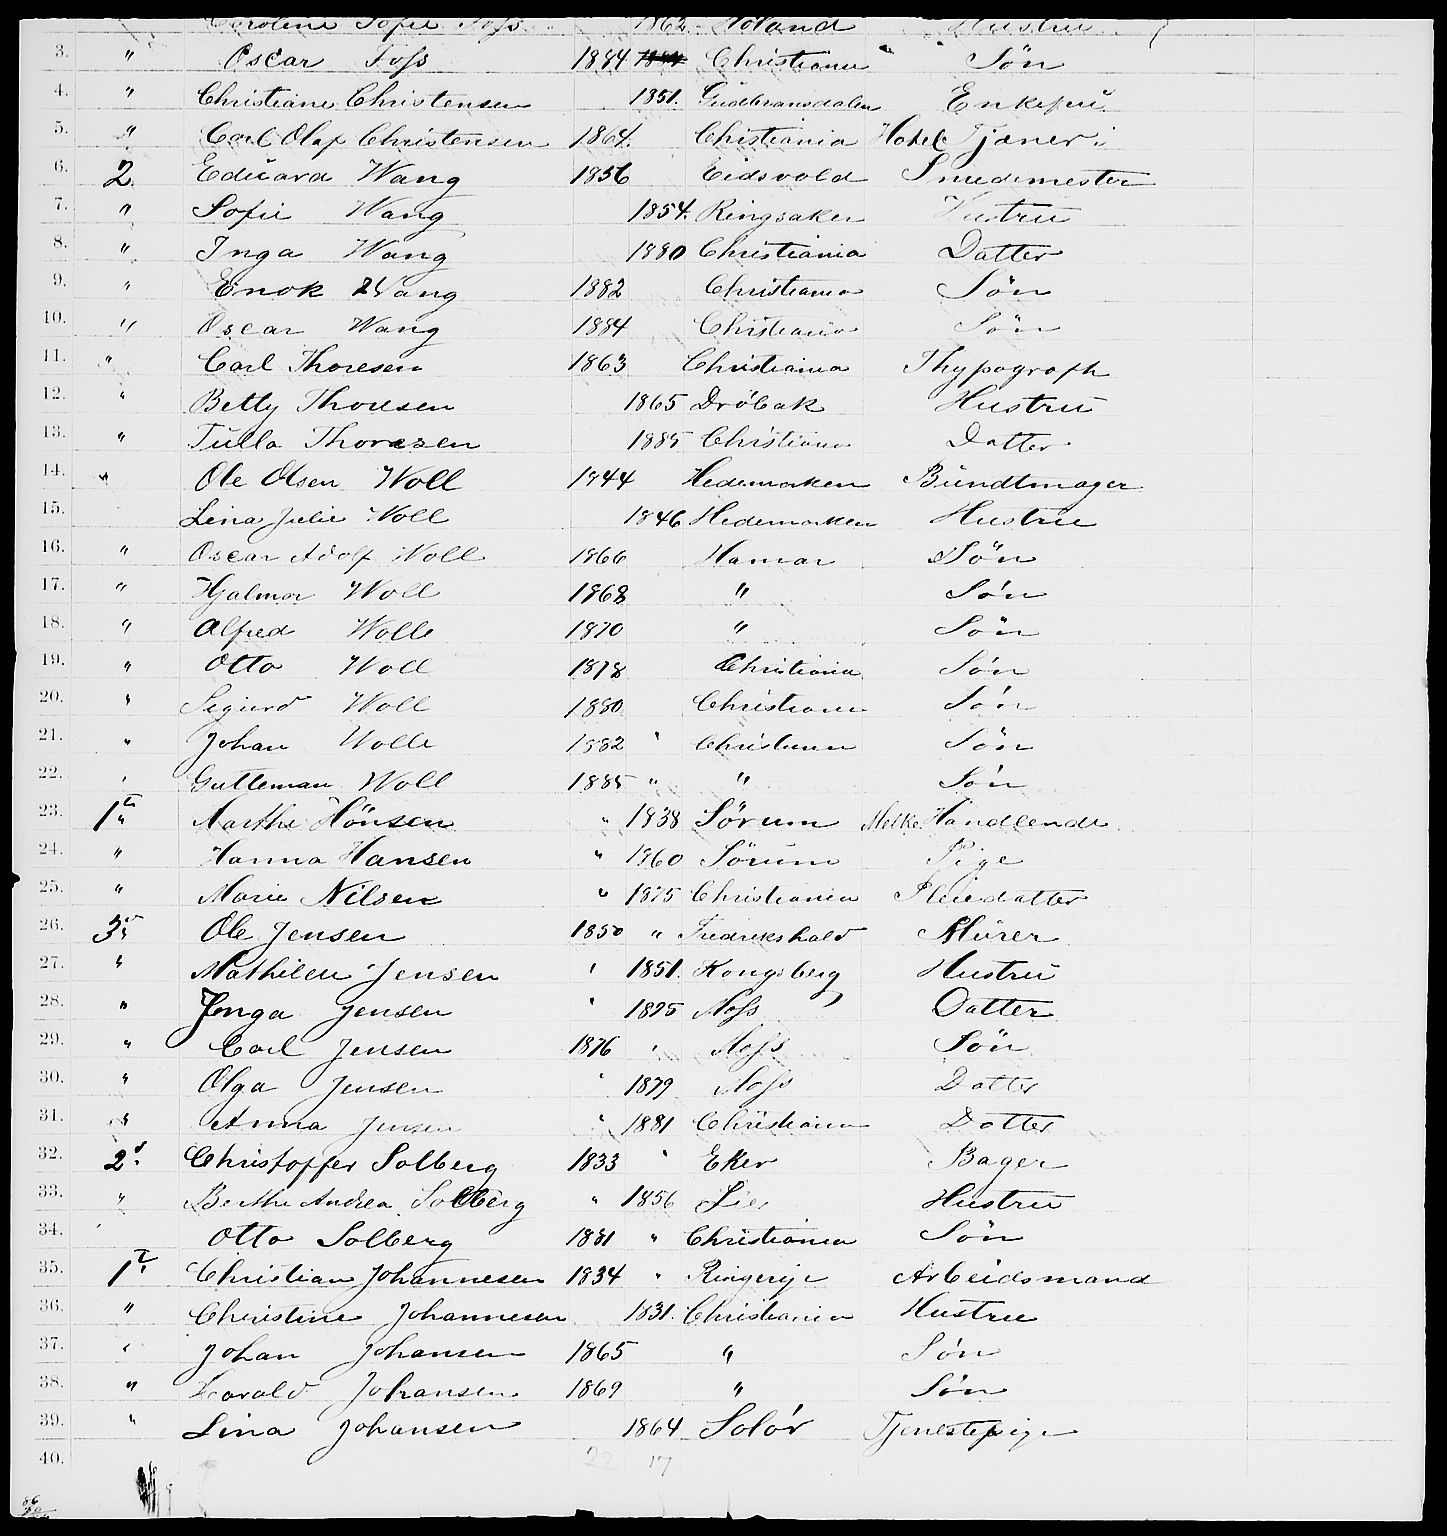 Caroline Sofie Foss 1862 Høland Hustru
3. " Oscar Foss 1884 Christiania " Søn
4. " Christiane Christensen 1851. Gudbransdalen Enkefru
5. " Carl Olaf Christensen 1864. Christiania Hotel Tjener
6. 2 Eduard Wang 1856 Eidsvold Smedemester
7. " Sofie Wang 1854. Ringsaker Hustru
8. " Inga Wang 1880 Christiania Datter
9. " Enok Wang 1882 Christiania Søn
10. " Oscar Wang 1884 Christiania Søn
11. " Carl Thoresen 1863 Christiania Thypograph
12. " Betty Thoresen 1865 Dröbak Hustru
13. " Tulla Thoresen 1885 Christiania Datter
14. " Ole Olsen Woll 1844 Hedemarken Bundtmager
15. Lina Julie Woll 1846 Hedemarken Hustru
16. " Oscar Adolf Woll 1866 Hamar Søn
17. " Hjalmar Woll 1868 " Søn
18. " Alfred Wolle 1870 " Søn
19. " Otto Woll 1878 Christiania Søn
20. " Sigurd Woll 1880 Christiania Søn
21. " Johan Wolle 1882 " Christiania Søn
22. " Gutteman Woll 1885 " " Søn
23. 1 " Marthe Hönsen " 1838 Sörum Melke Handlende
24. " Hanna Hansen " 1860 Sörum Pige
25. " Marie Nilsen " 1875 Christiania Pleiedatter
26. 3 " Ole Jensen 1850 " Fredrikshald Murer
27. " Mathilde Jensen " 1851. Kongsberg Hustru
28. " Inga Jensen " 1875 Moss Datter
29. " Carl Jensen 1876 " Moss Søn
30. " Olga Jensen " 1879 Moss Datter
31. " Anna Jensen " 1881 Christiania Datter
32. 2 Christoffer Solberg 1833 " Eker Bager
33. " Berthe Andrea Solberg " 1856 Lier Hustru
34. " Otto Solberg 1881 " Christiania Søn
35. 1 Christian Johannesen 1834 " Ringerige Arbeidsmand
36. " Christine Johannesen 1831. Christiania Hustru
37. " Johan Johansen 1865 " Søn
38. " Harald Johansen 1869 " Søn
39. " Lina Johansen 1864 Solör Tjenestepige
40. 22 17